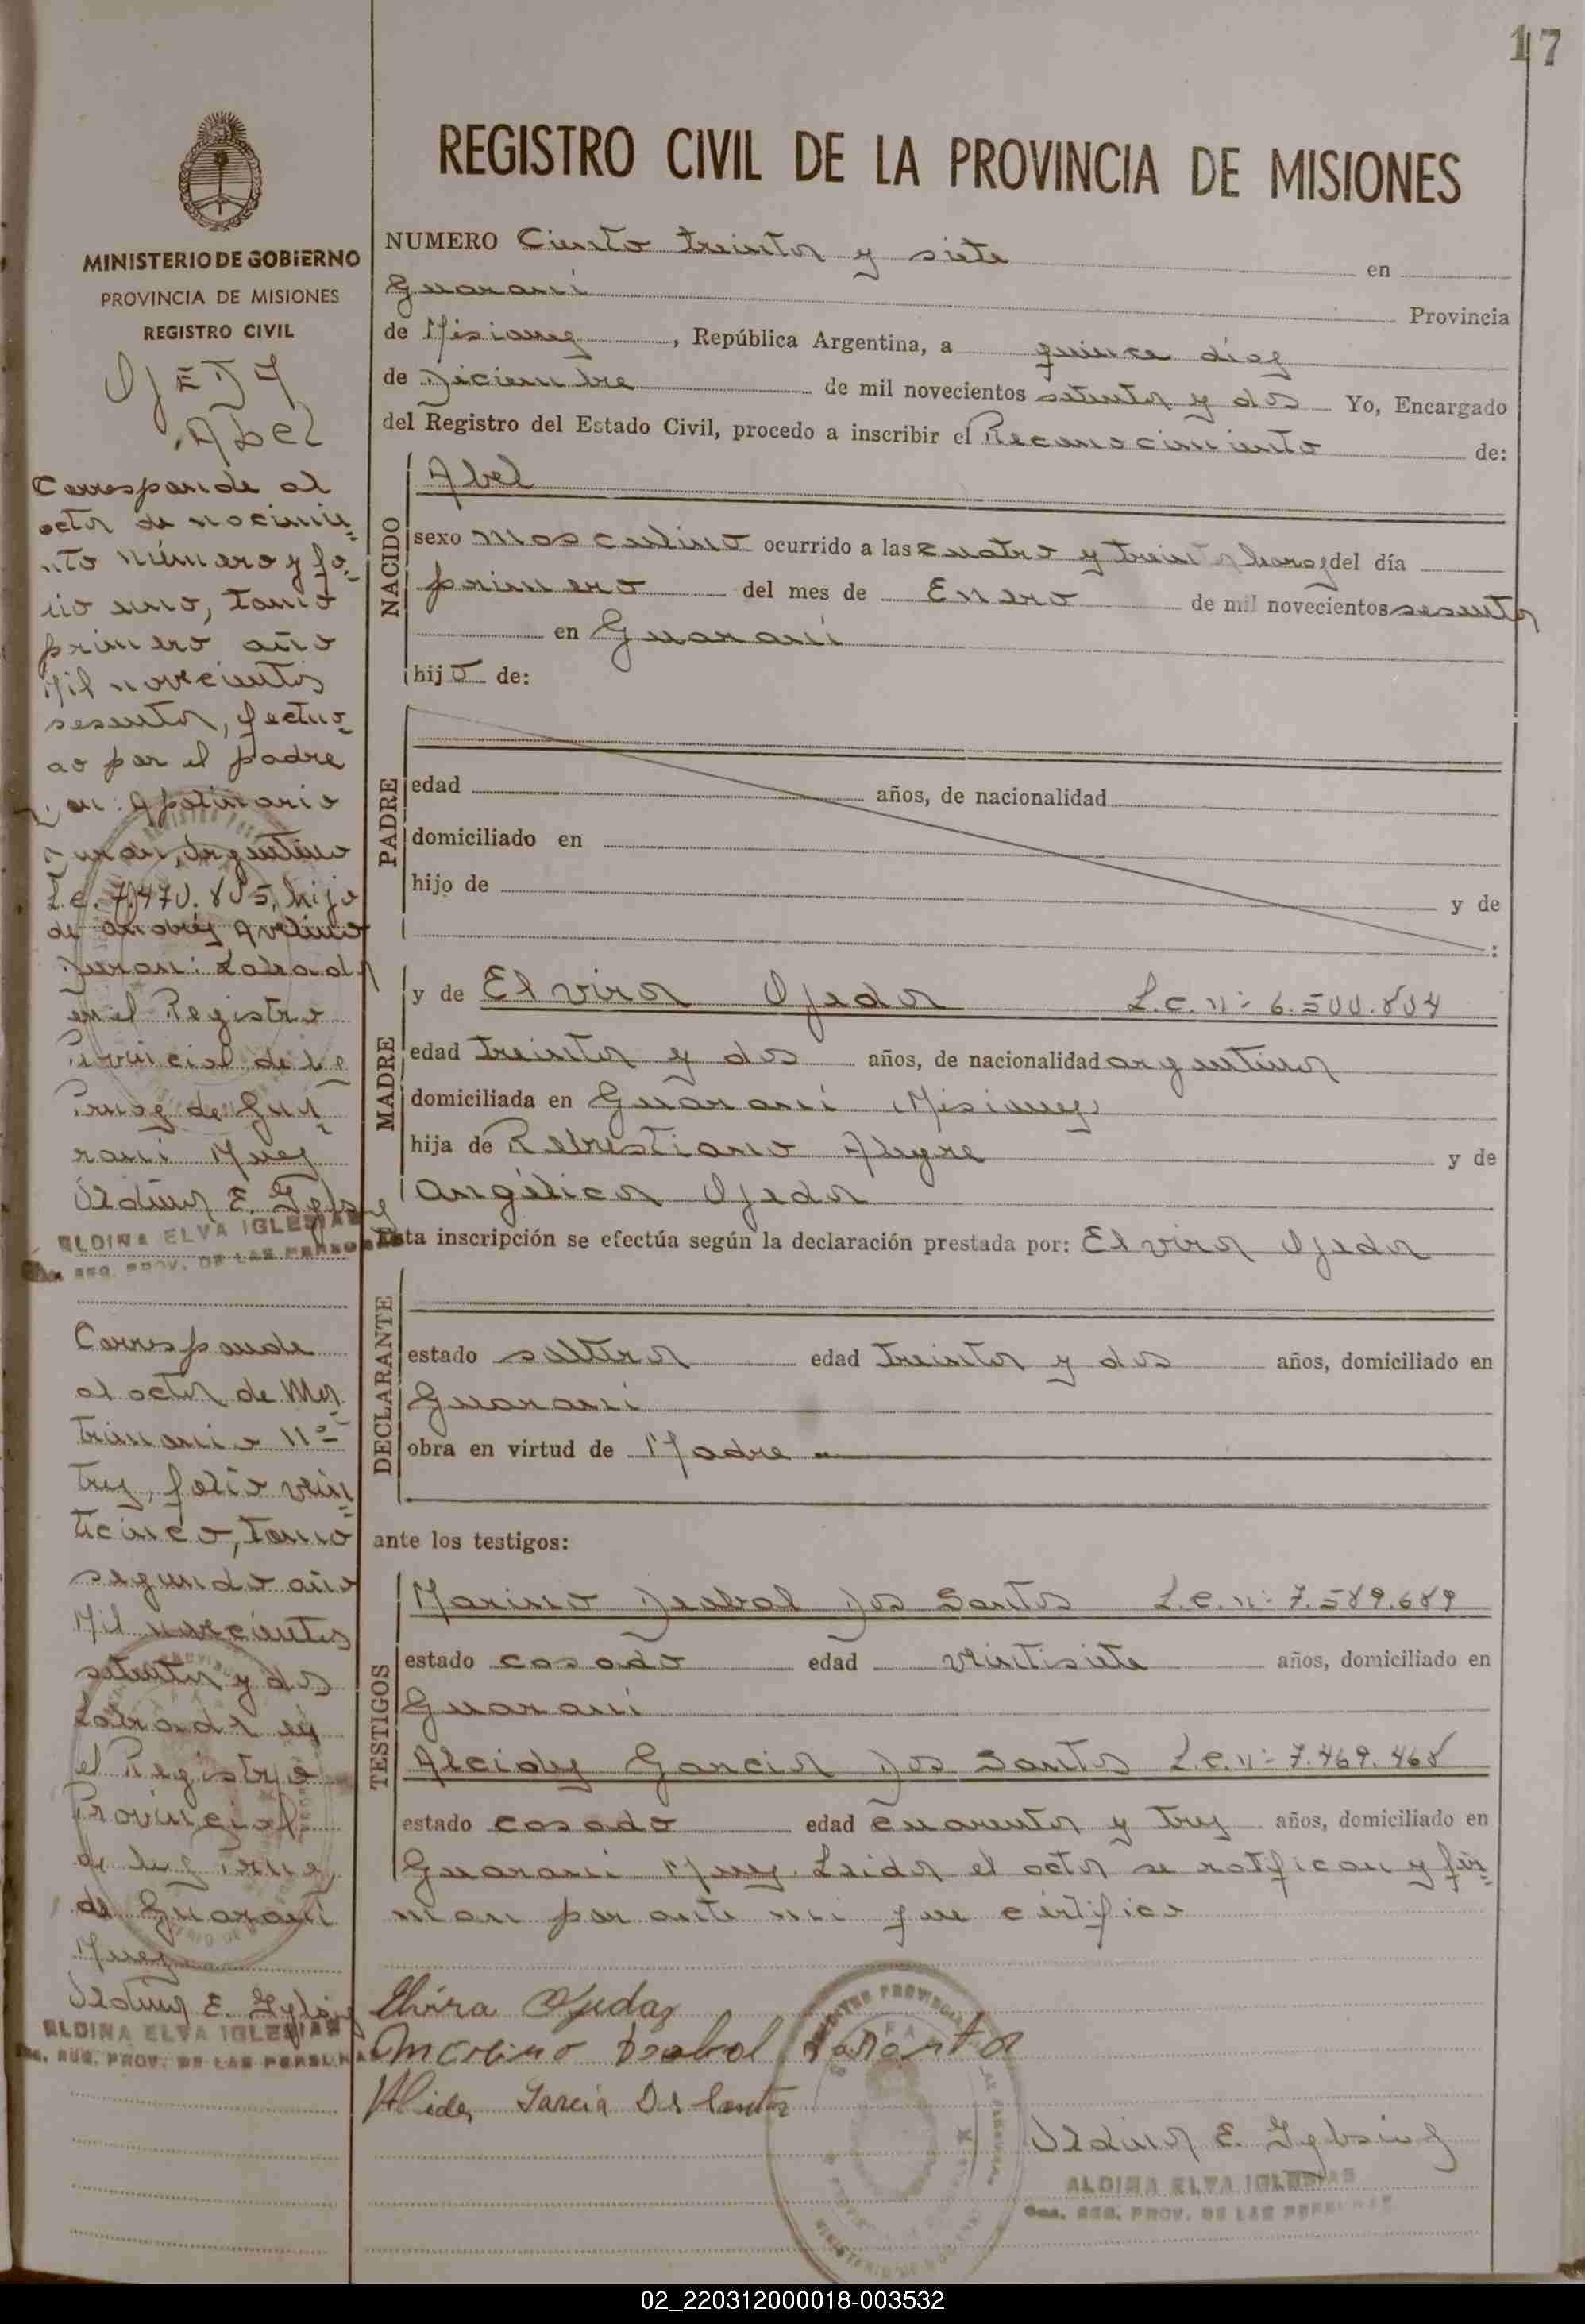 17
MINISTERIO DE GOBIERNO
PROVINCIA DE MISIONES
REGISTRO CIVIL
OJEDA
Abel
Corresponde al
acta de nacimie-
nto número y fo-
lio uno, tomo
primero año
Mil novecientos
sesenta, fectua-
do por el padre
Apolinario
Duran, Argentino
L.e. 7.470.805, hijo
de Andrés Avelino
Duran: Labrada
en el Registro
Provincial de Le
Prnas de Gua-
raní Mnes
Aldina E. Iglesias
ALDINA ELVA IGLESIAS
REG. PROV. DE LAS PERSONAS
Corresponde
al acta de Ma-
trimonio nº
tres, folio vein-
ticinco, tomo
segundo año
Mil novecientos
setenta y dos
Labrada en
el Registro
Provincial
de las Prnas
de Guaraní
Mnes
Aldina E. Iglesias
ALDINA ELVA IGLESIAS
REG. PROV. DE LAS PERSONAS
REGISTRO CIVIL DE LA PROVINCIA DE MISIONES
NUMERO Ciento treinta y siete en
Guaraní Provincia
de Misiones, República Argentina, a quince días
de Diciembre de mil novecientos setenta y dos Yo, Encargado
del Registro del Estado Civil, procedo a inscribir el Reconocimiento de:
NACIDO
Abel
sexo masculino ocurrido a las cuatro y treinta horas del día
primero del mes de Enero de mil novecientos sesenta
en Guaraní
hijo de:
PADRE
edad años, de nacionalidad
domiciliado en
hijo de y de
:
MADRE
y de Elvira Ojeda L.c. nº 6.500.804
edad treinta y dos años, de nacionalidad argentina
domiciliada en Guaraní (Misiones)
hija de Alegre y de
Angélica Ojeda
Esta inscripción se efectúa según la declaración prestada por: Elvira Ojeda
DECLARANTE
estado soltera edad treinta y dos años, domiciliado en
Guaraní
obra en virtud de Madre
ante los testigos:
TESTIGOS
Marino Dos Santos L.e. nº 7.589.689
estado casado edad veintisiete años, domiciliado en
Guaraní
Alcides Garcia Dos Santos L.e. nº 7.469.468
estado casado edad cuarenta y tres años, domiciliado en
Guaraní Mnes. Leida el acta se ratifican y fir-
man por ante mi que certifico
Elvira Ojeda
Alcides Garcia Dos Santos
Aldina E. Iglesias
ALDINA ELVA IGLESIAS
REG. PROV. DE LAS PERSONAS
02_220312000018-003532